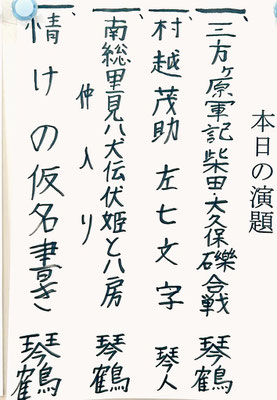 本日の演題
一、三方ヶ原軍記 柴田・大久保礫合戦 琴鶴
一、村越茂助 左七文字 琴人
一、南総里見八犬伝 伏姫と八房 琴鶴
仲入り
一、情けの仮名書き 琴鶴